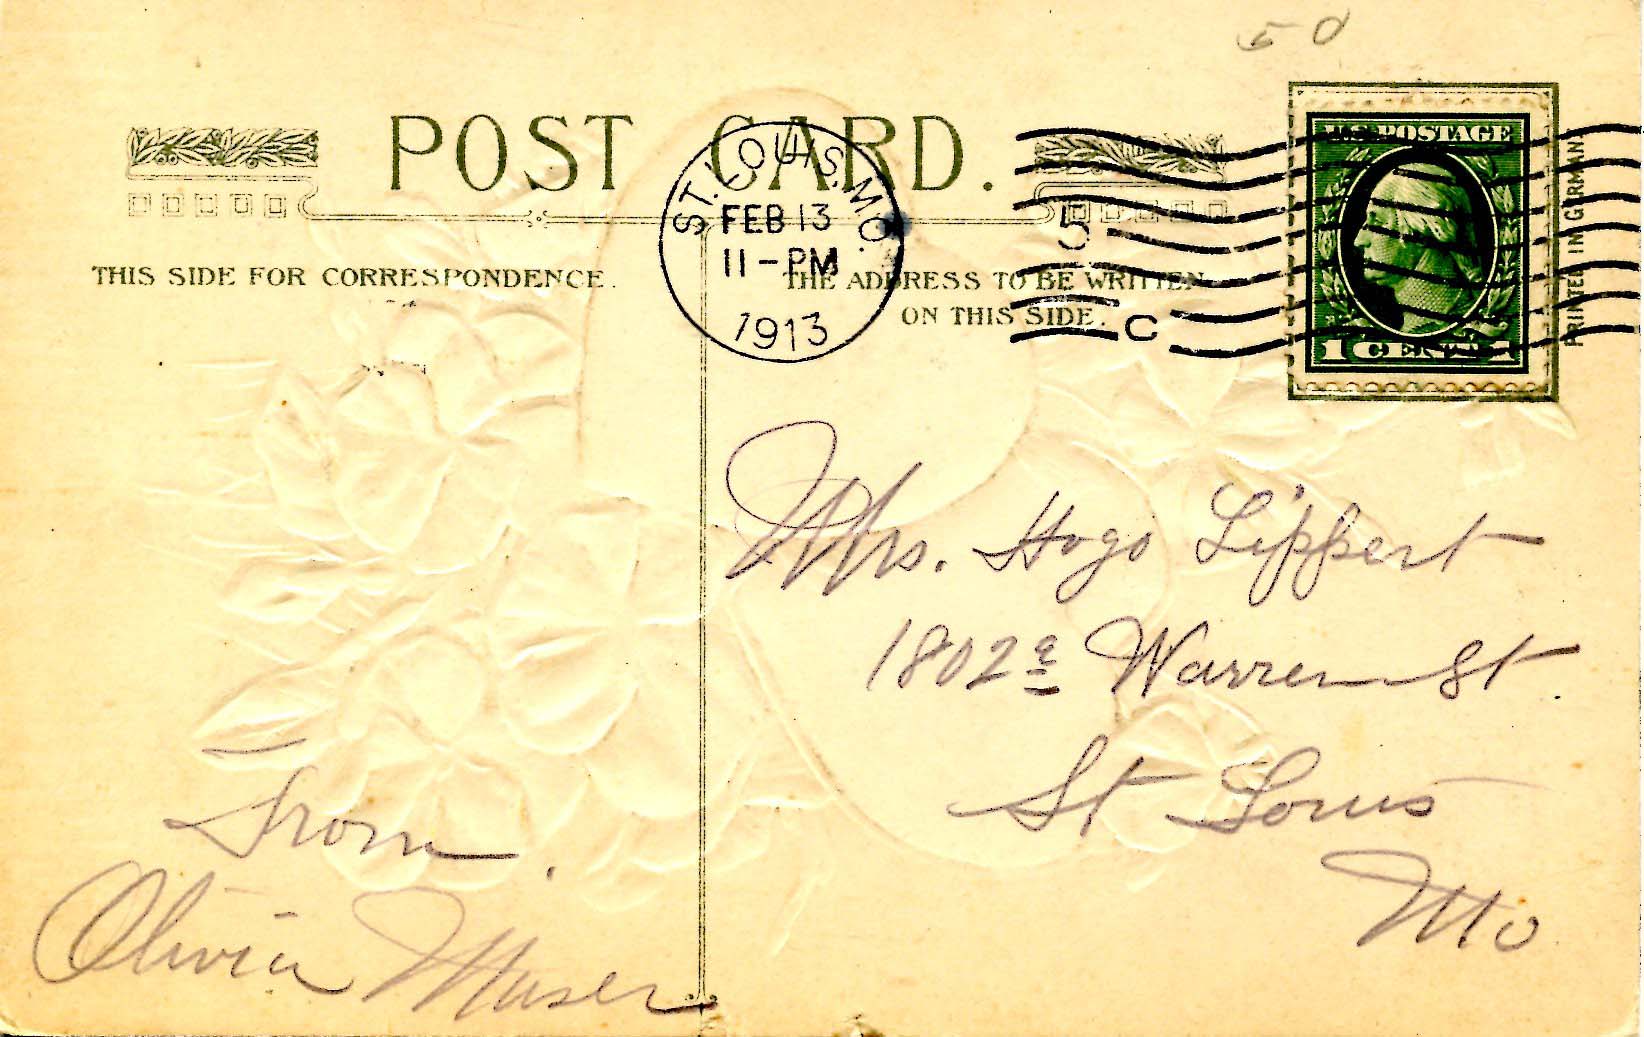 50
POST CARD.
ST. LOUIS. MO.
FEB 13
11-PM
1913
5
C
U.S. POSTAGE
1 CENT 1
PRINTED IN GERMANY
THIS SIDE FOR CORRESPONDENCE.
THE ADDRESS TO BE WRITTEN
ON THIS SIDE.
Mrs. Hogo Lippert
1802a Warren St.
St Louis
Mo
From.
Olivia Muser